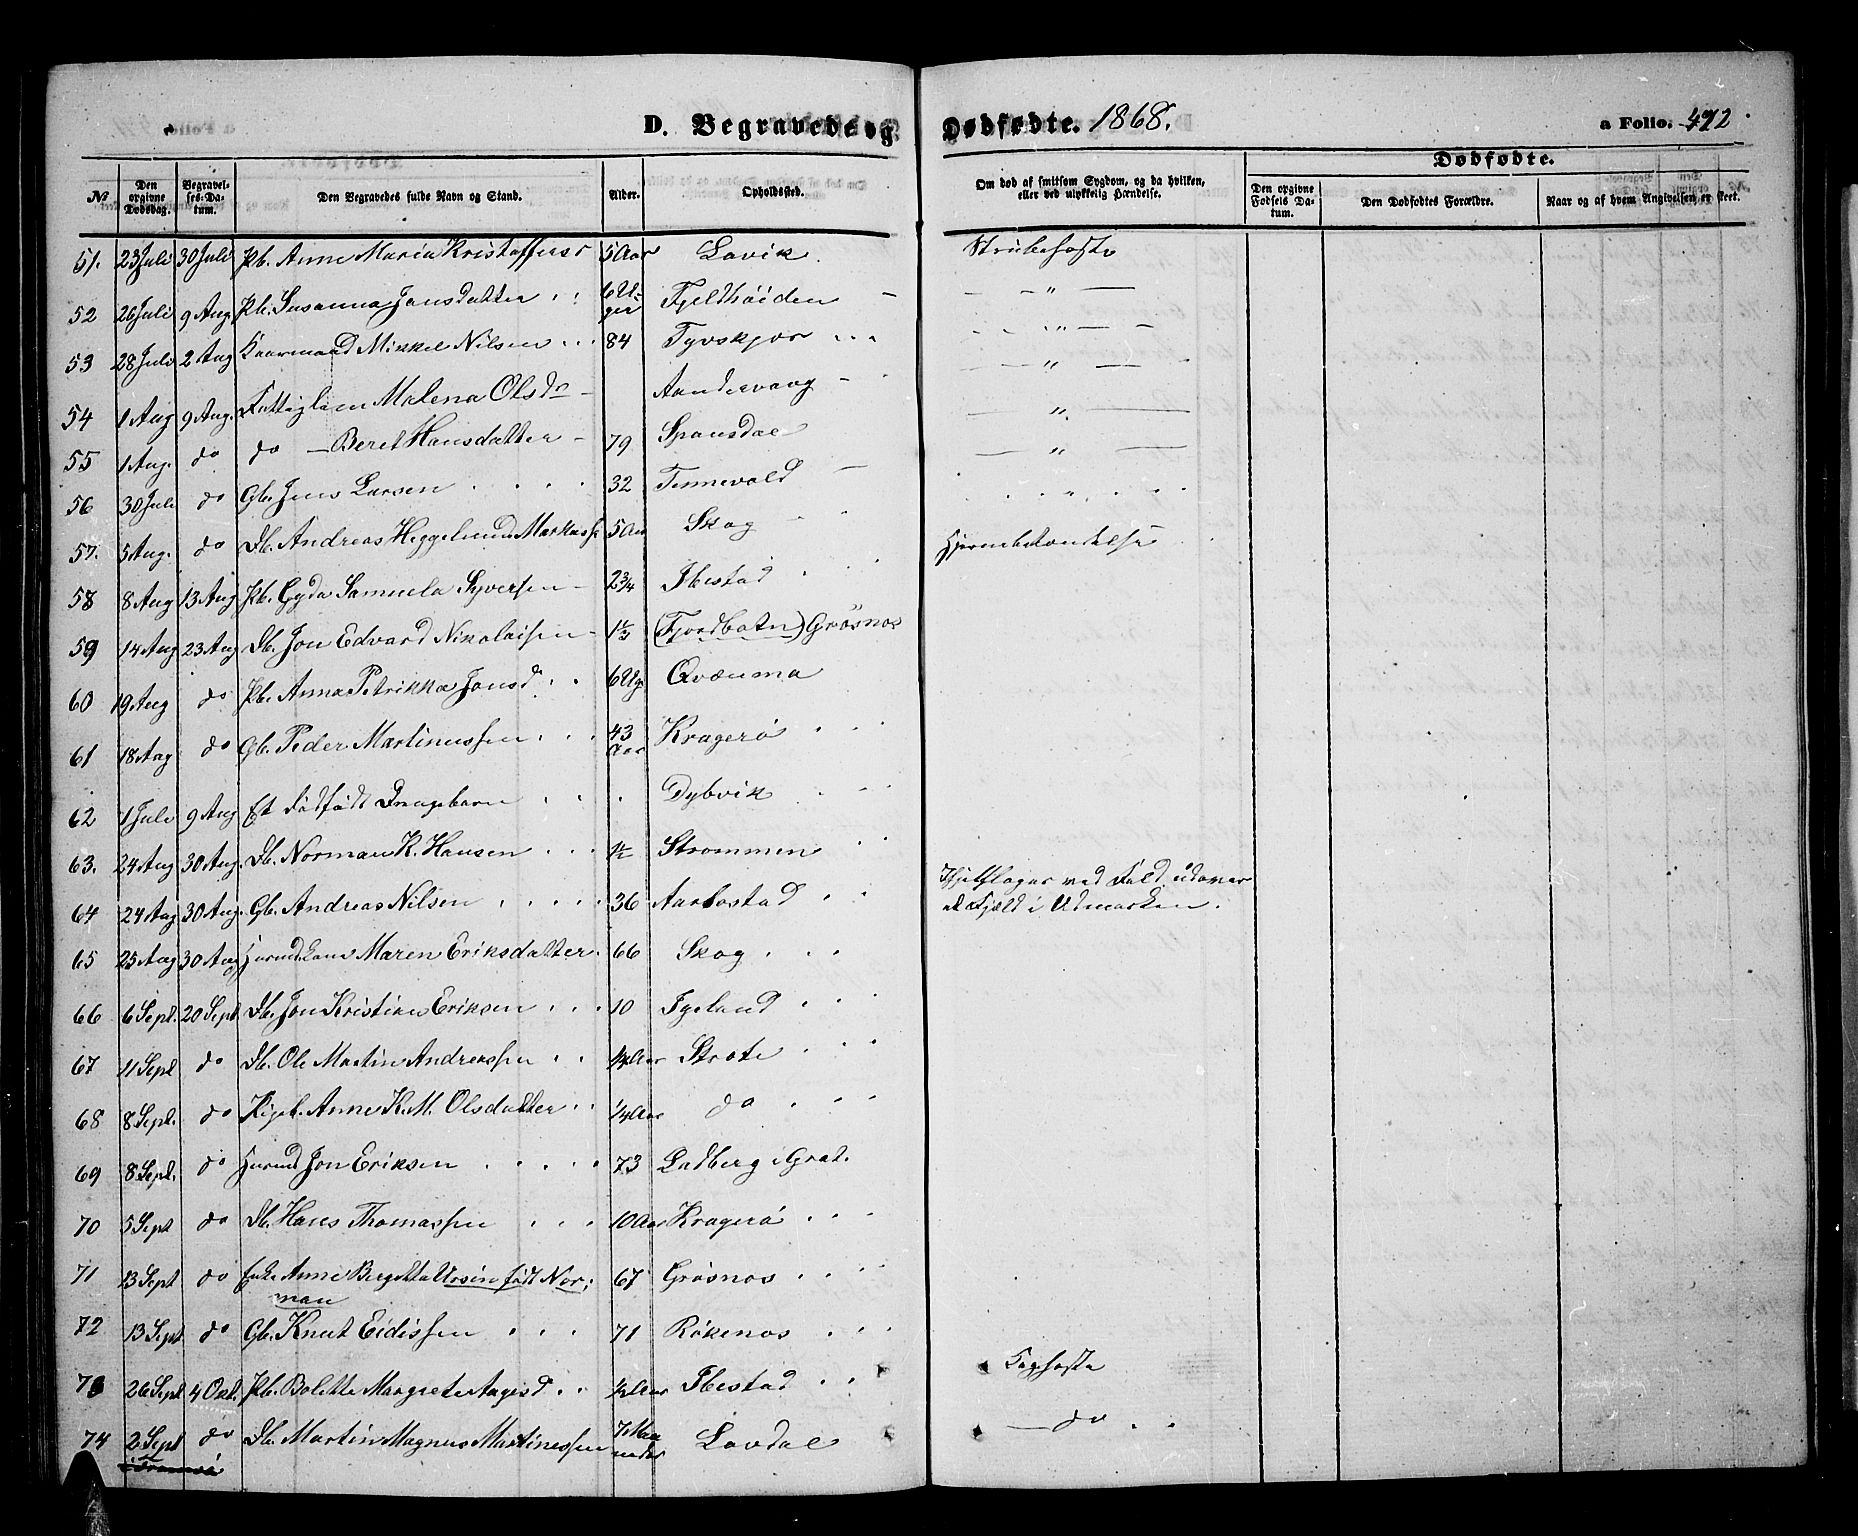 D. Begravede og Dødfødte. 1868. a Folio. 472
Dødfødte.
№ Den opgivne Dødsdag. Begravelses-Datum. Den Begravedes fulde Navn og Stand. Alder. Opholdssted. Om død af smitsom Sygdom, og da hvilken, eller ved ulykkelig Hændelse. Den opgivne Fødsels Datum. Den Dødfødtes Forældre. Naar og af hvem Angivelsen er skeet.
51. 23 Juli 30 Juli Pb. Anne Maria Kristoffersd 5 Aar Lavik. Strubehoste
52 26 Juli 9 Aug Pb. Susanna Jonsdatter 6 Uger Fjeldhøiden — " —
53 28 Juli 2 Aug Kaarmand Mikkel Nilsen 84 Tyvskjær — " —
54 1 Aug 9 Aug. Fattiglem Malena Olsdr Aandervaag — " —
55 1 Aug. do do — Beret Hansdatter 79 Spansdal — " —
56 30 Juli do Gb. Jens Larsen 32 Tennevold — " —
57. 5 Aug. do Db. Andreas Heggelund Markuss 5 Aar Skog "
58 8 Aug 13 Aug Pb. Gyda Samuela Syversen 2¾ Ibestad Hjernebetændelse
59 14 Aug 23 Aug Db. Jon Edvard Nikolaisen 1⅓ (Fjordbotn) Grøsnes
60 19 Aug do Pb. Anna Petrikka Jonsd. 6 Ug Qvænma
61 18 Aug do Gb. Peder Martinussen 43 Aar Kragerö
62 1 Juli 9 Aug Et dødfødt Drngebarn Dybvik
63. 24 Aug 30 Aug. Db. Norman K. Hansen 1½ Strømmen
64 24 Aug 30 Aug. Gb. Andreas Nilsen 36 Aarbostad Ihjelslagen ved Fald udover
et Fjeld i Udmarken.
65 25 Aug 30 Aug Maren Eriksdatter 66 Skog
66 6 Sept. 20 Sept Db. Jon Kristian Eriksen 10 Fygeland
67 11 Sept do Db. Ole Martin Andreassen ¼ Aar Strøte
68 8 Sept. do Pigeb. Anne K. M. Olsdatter ¼ Aar do
69 8 Sept. do Jon Eriksen 73 Ladberg i Grat.
70 5 Sept do Db. Hans Thomassen 10 Aar Kragerö
71 13 Sept do Enke Anne Bergitta Ursin født Nor-
man 67 Grøsnes
72 13 Sept do Gb. Knut Eidissen 71 Rökenes
73 26 Sept 4 Okt. Pb. Bolette Margrete Aagesd ½ Aar Ibestad Kighoste
74 2 Sept do Db. Martin Magnus Martinessen 7 Maaneder Løvdal — do